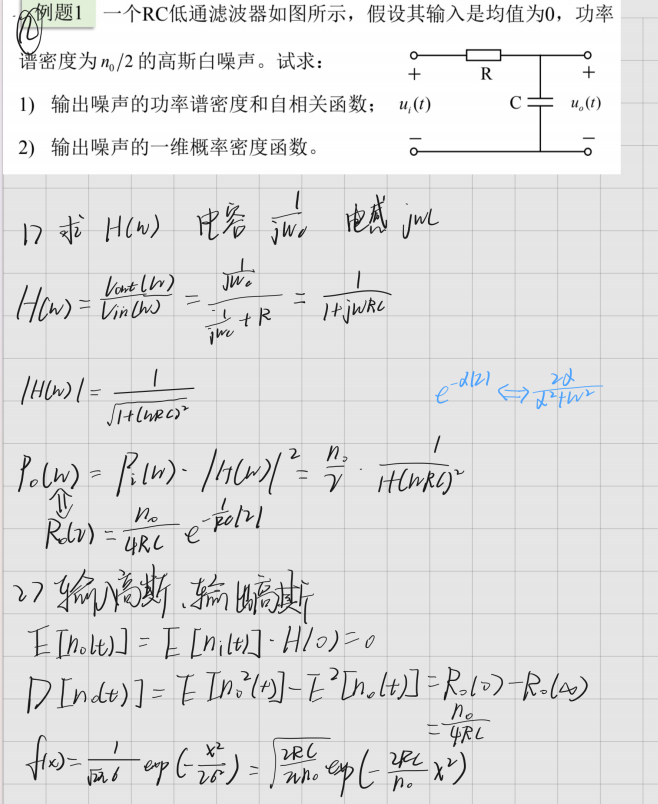 例题1 一个RC低通滤波器如图所示，假设其输入是均值为0，功率
谱密度为 n₀/2 的高斯白噪声。试求：
1) 输出噪声的功率谱密度和自相关函数；
2) 输出噪声的一维概率密度函数。
+ R +
uᵢ(t) C uₒ(t)
− −
1) 求 H(w) 电容 1/jwc 电感 jwL
H(w) = Vout(w)/Vin(w) = (1/jwc)/(1/jwc + R) = 1/(1+jwRC)
|H(w)| = 1/√(1+(wRC)²)
e^(-α|τ|) ⇔ 2α/(α²+w²)
Pₒ(w) = Pᵢ(w)·|H(w)|² = n₀/2 · 1/(1+(wRC)²)
⇕
Rₒ(τ) = n₀/4RC e^(-1/RC |τ|)
2) 输入高斯、输出高斯
E[nₒ(t)] = E[nᵢ(t)]·H(0) = 0
D[nₒ(t)] = E[nₒ²(t)] - E²[nₒ(t)] = Rₒ(0) - Rₒ(∞)
= n₀/4RC
f(x) = 1/(√2π σ) exp(-x²/2σ²) = √(2RC/πn₀) exp(-2RC/n₀ x²)